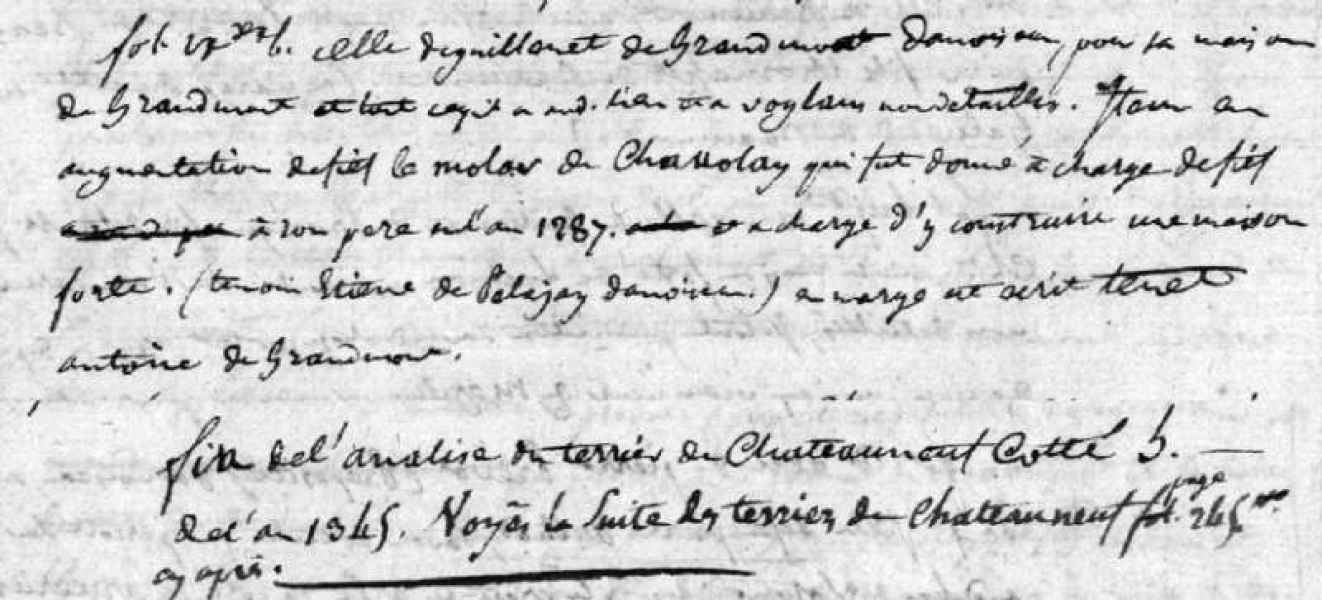 fol. celle deguillanet de Grandmont damoiseau, pour sa maison
de Grandmont et tout ce qu'il a aud. lieu et a voglans non detaillés. Item en
augmentation defief le molar de Chassolay qui fut donné à charge defief
à son pere en l'an 1287. et a charge d'y construire une maison
forte. (temoin Etiene de Palajay damoiseau.) en marge est ecrit tenet
antoine de Grandmont.
fin del'analise du terrier de Chateauneuf Cotté b.
del'an 1345. Voyés la Suite des terriers de Chateauneuf page
cy après.